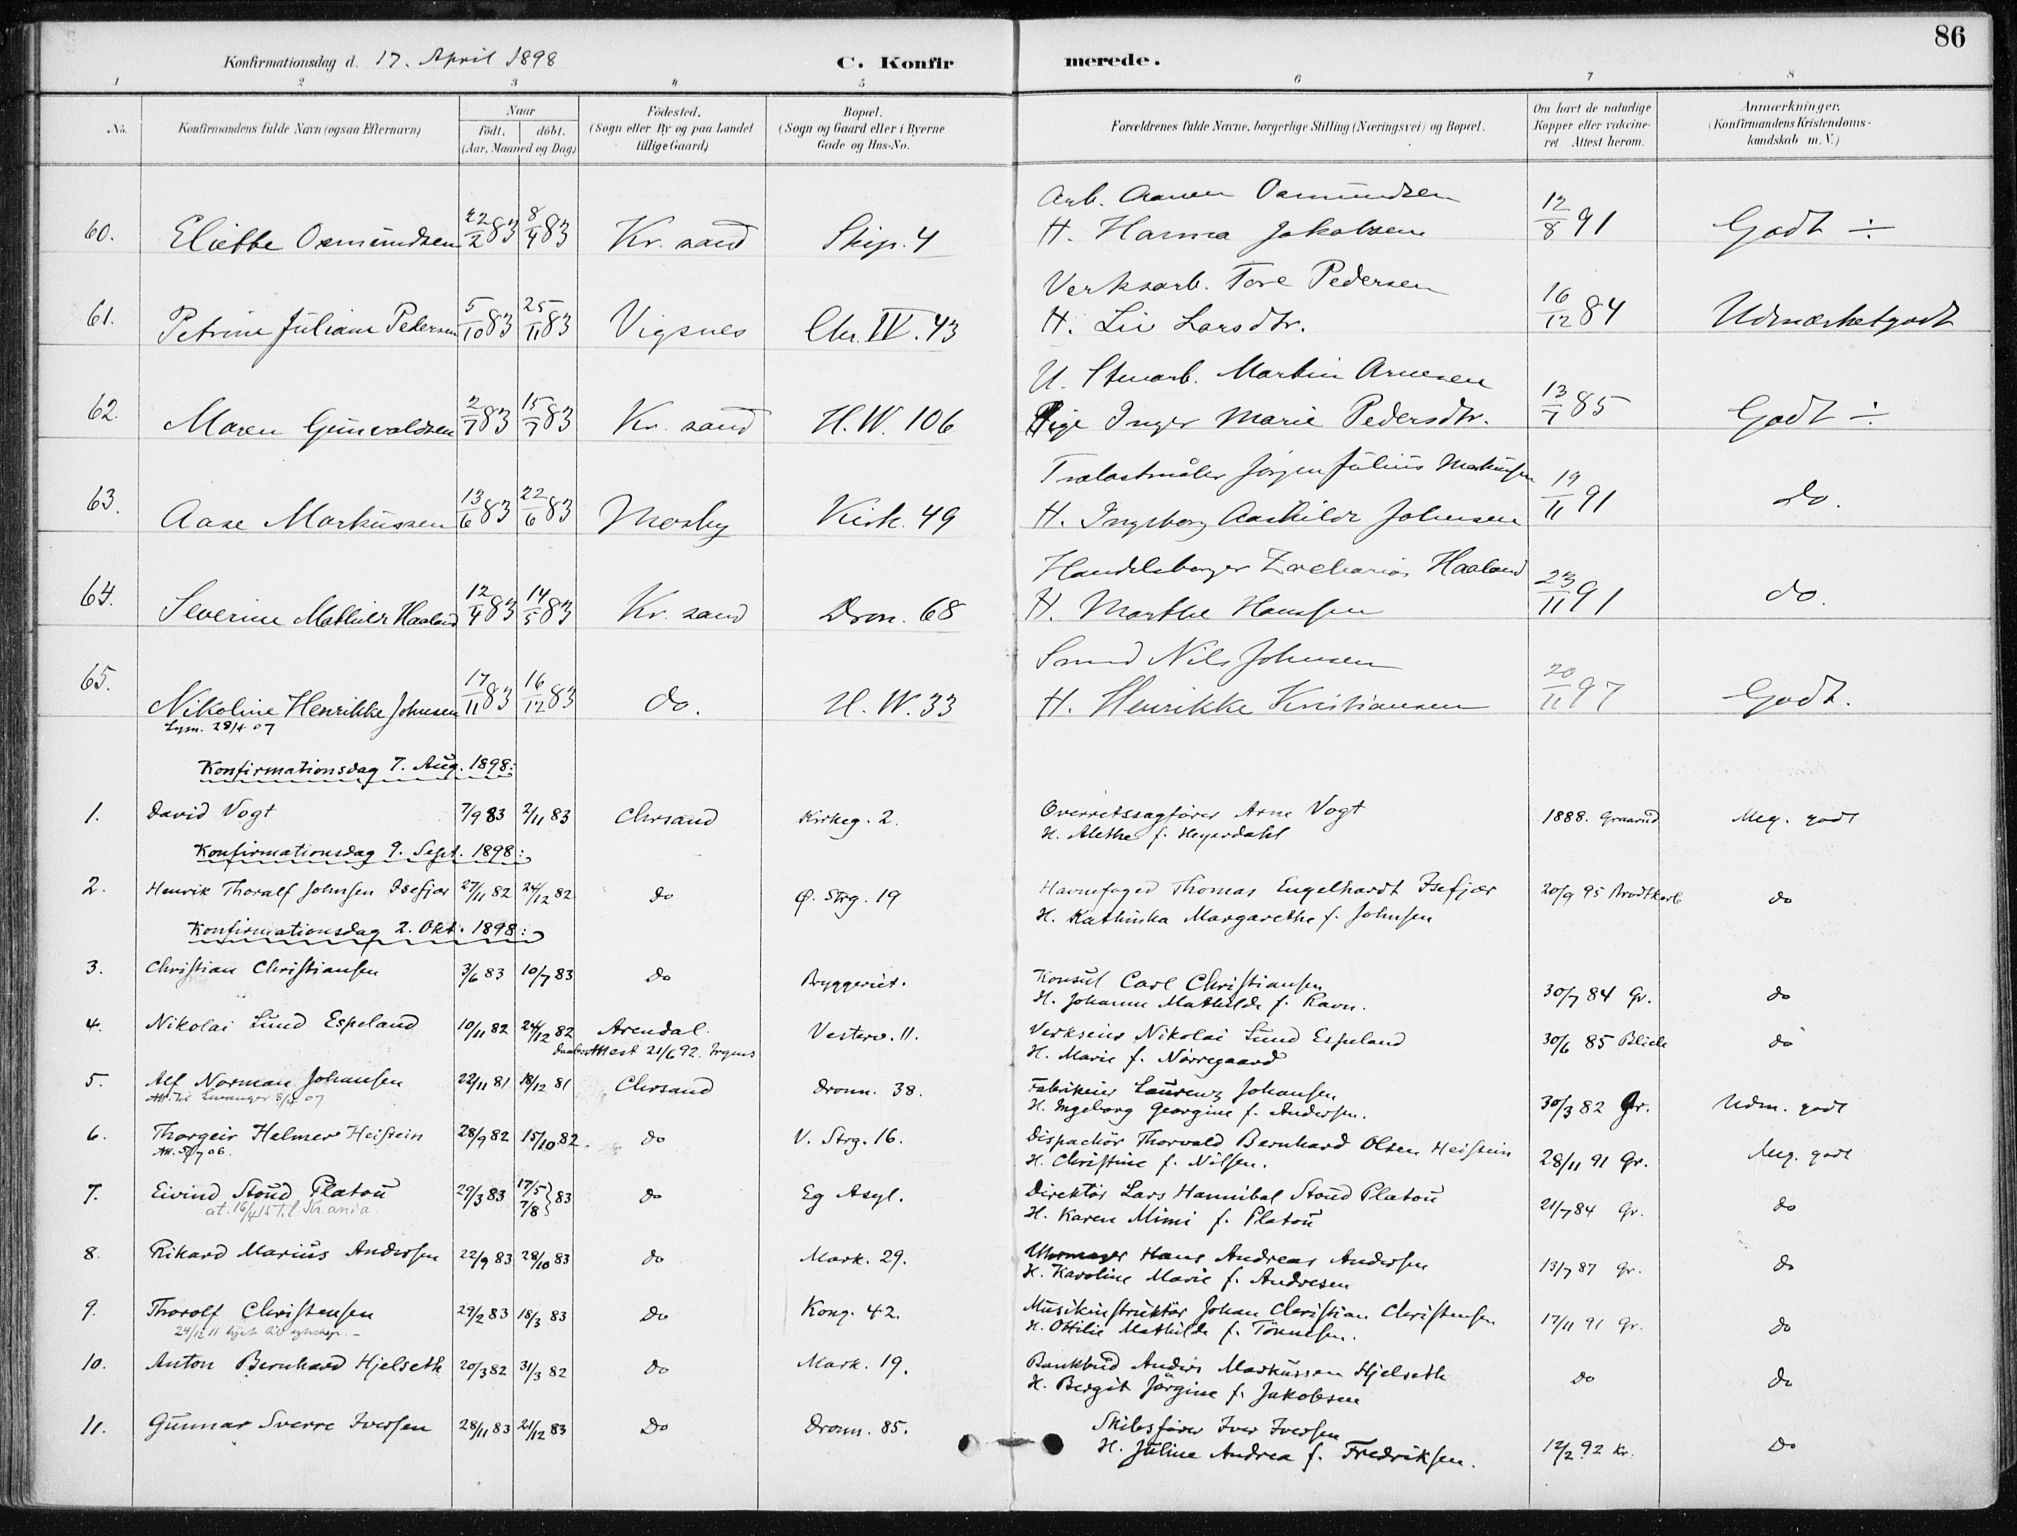 86
Konfirmationsdag d. 17. April 1898
C. Konfirmerede.
1 2 3 4 5 6 7 8
No. Konfirmandens fulde Navn (ogsaa Efternavn) Naar født. døbt. (Aar, Maaned og Dag) Fødested. (Sogn eller By og paa Landet tillige Gaard) Bopæl. (Sogn og Gaard eller i Byerne Gade og Hus-No. Forældrenes fulde Navne, borgerlige Stilling (Næringsvei) og Bopæl. Om havt de naturlige Kopper eller vakcineret. Attest herom. Anmærkninger. (Konfirmandens Kristendomskundskab m. V.)
Arb. Osmundsen
60. Osmundsen 22/2 83 8/4 83 Kr. sand Skip. 4 H. Hanna Jakobsen 12/8 91 Godt ÷
Verksarb. Tore Pedersen
61. Petrine Juliane Pedersen 5/10 83 25/11 83 Vigsnes Chr. IV. 43 H. Liv Larsdtr. 16/12 84 Udmærket godt
U. Stenarb. Martin Arnesen
62. Maren Gunvaldsen 2/7 83 15/7 83 Kr. sand H. W. 106 Pige Inger Marie Pedersdtr. 13/7 85 Godt ÷
Trælastmåler Jørgen Julius Markussen
63. Aase Markussen 13/6 83 22/6 83 Mosby Kirk. 49 H. Ingeborg Aashilde Johnsen 19/11 91 do.
Handelsborger Zacharias Haaland
64. Severine Mathilde Haaland 12/4 83 14/5 83 Kr. sand Dron. 68 H. Marthe Hanssen 23/11 91 do.
Smed Nils Johnsen
65. Nikoline Henrikke Johnsen 17/11 83 16/12 83 do. H. W. 33 H. Henrikke Kristiansen 20/11 97 Godt.
28/4 07
Konfirmationsdag 7. Aug. 1898:
1. David Vogt 7/9 83 2/11 83 Chrsand Kirkeg. 2. Overretssagfører Arne Vogt 1888. Graarud Meg. godt
H. Alethe f. Heyerdahl
Konfirmationsdag 9. Sept. 1898:
2. Henrik Thoralf Johnsen Isefjær 27/11 82 24/12 82 do Ø. Strg. 19 Havnefoged Thomas Engelhardt Isefjær 20/9 95 Brodtkorb do
H. Kathinka Margarethe f. Johnsen
Konfirmationsdag 2. Okt. 1898:
3. Christian Christiansen 3/6 83 10/7 83 do Bryggeriet. Konsul Carl Christiansen 30/7 84 Gr. do
H. Johanne Mathilde f. Ravn.
4. Nikolai Lund Espeland 10/11 82 24/12 82 Arendal. Vesterv. 11. Verkseier Nikolai Lund Espeland 30/6 85 Blich do
Daabsattest 21/6 92. Irgens H. Marie f. Nørregaard
5. Alf Norman Johansen 22/11 81 18/12 81 Chrsand Dronn. 38. Fabrikeier Laurenz Johansen 30/3 82 Gr. Udm. godt
Att. til Levanger 8/4 07 H. Ingeborg Georgine f. Andersen.
6. Thorgeir Helmer Heistein 28/9 82 15/10 82. do V. Strg. 16. Dispachør Thorvald Bernhard Olsen Heistein 28/11 91 Gr. Meg. godt
H. Christine f. Nilsen.
7. Eivind Stoud Platou 29/3 83 17/5 7/8 } 83 do Eg Asyl. Direktør Lars Hannibal Stoud Platou 21/7 84 Gr. do
at. 16/4 15 til Kr.ania H. Karen Mimi f. Platou
8. Rikard Marius Andersen 22/9 83 28/10 83 do Mark. 29. Uhrmager Hans Andreas Andersen 13/7 87 Gr. do
H. Karoline Marie f. Andresen
9. Thorolf Christensen 29/2 83 18/3 83 do Kong. 42. Musikinstruktør Johan Christian Christensen 17/11 91 Gr. do
H. Ottilie Mathilde f. Tønnesen.
10. Anton Bernhard Hjelseth 20/3 82 31/3 82 do Mark. 19. Bankbud Anders Markussen Hjelseth do do
H. Bergit Jørgine f. Jakobsen
11. Gunnar Sverre Iversen 28/11 83 21/12 83 do Dronn. 85. Skibsfører Iver Iversen 12/2 92 Kr. do
H. Juline Andrea f. Fredriksen.